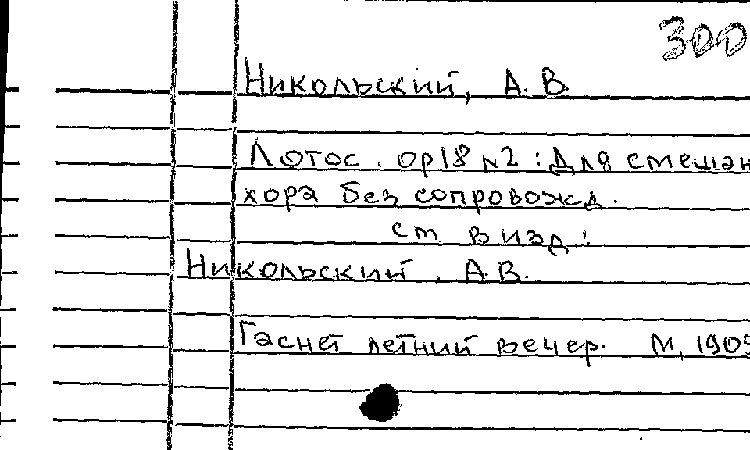 300
Никольский, А. В.
Лотос. ор18 №2: Для смешан
хора без сопровожд.
см в изд:
Никольский, А.В.
Гаснет летний вечер. М, 1909